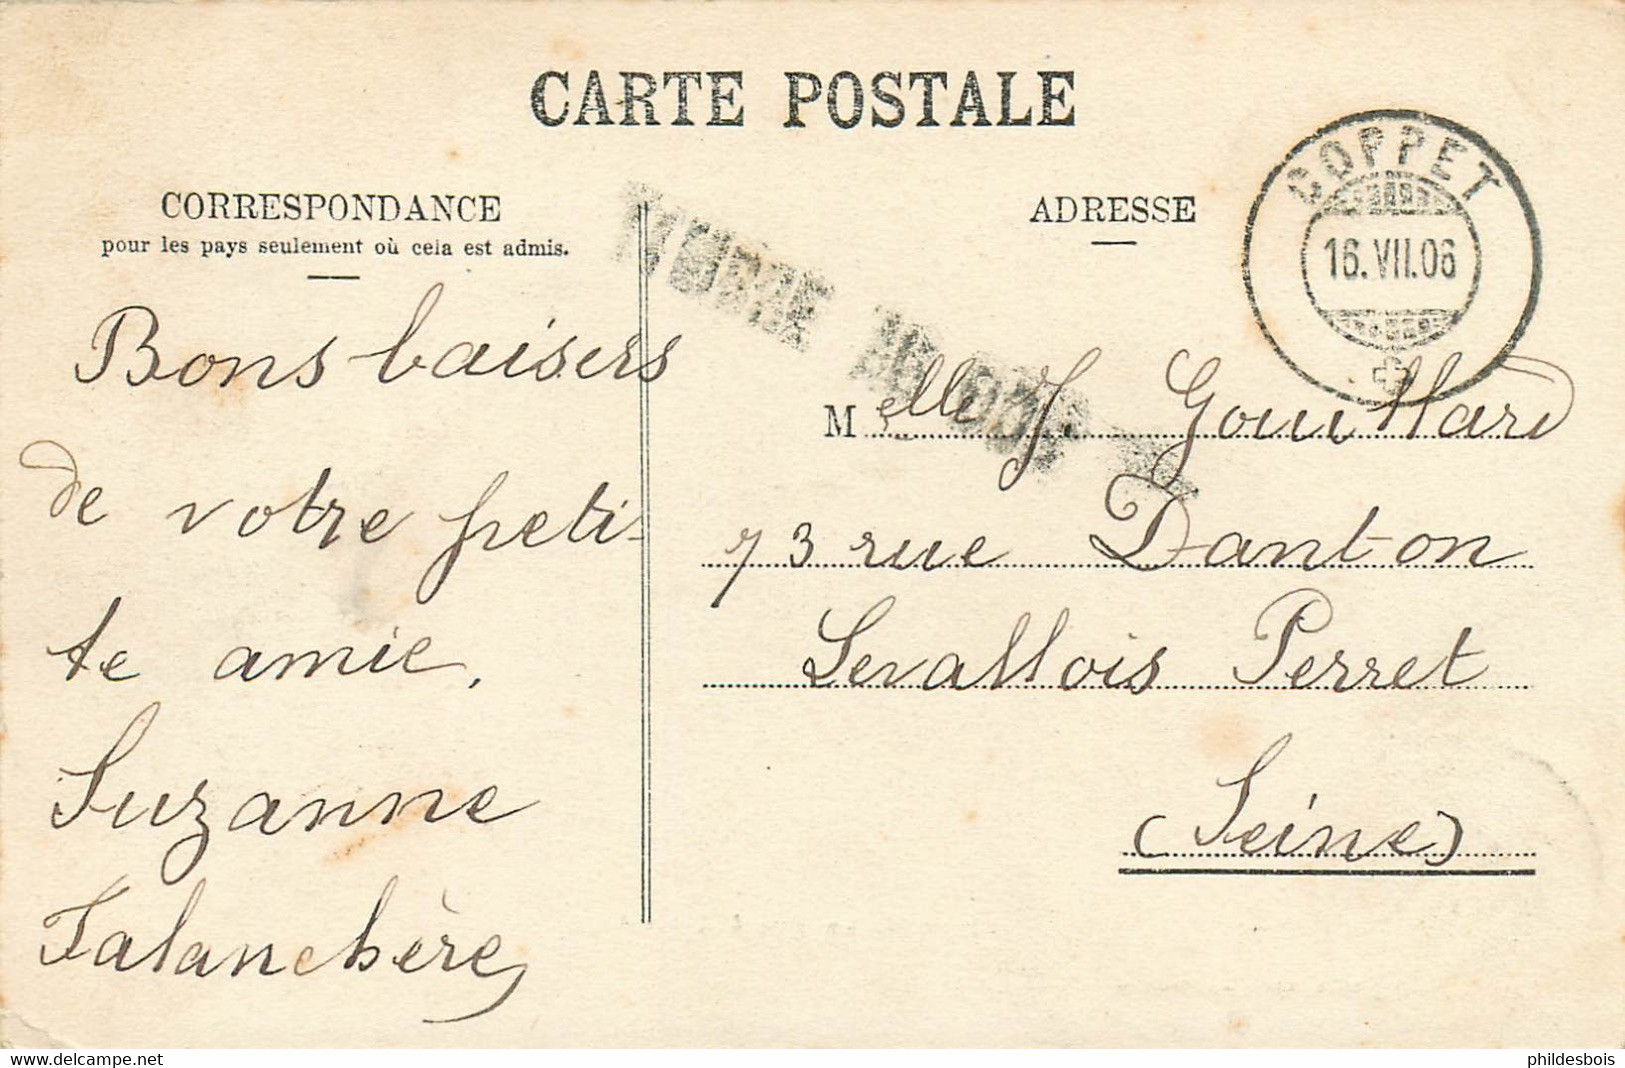 CARTE POSTALE
CORRESPONDANCE
pour les pays seulement où cela est admis.
Bons baisers
de votre peti-
te amie.
Suzanne
Talanchère
ADRESSE
COPPET
16.VII.06
Melle J. Gouillard
73 rue Danton
Levallois Perret
(Seine)
delcampe.net
phildesbois